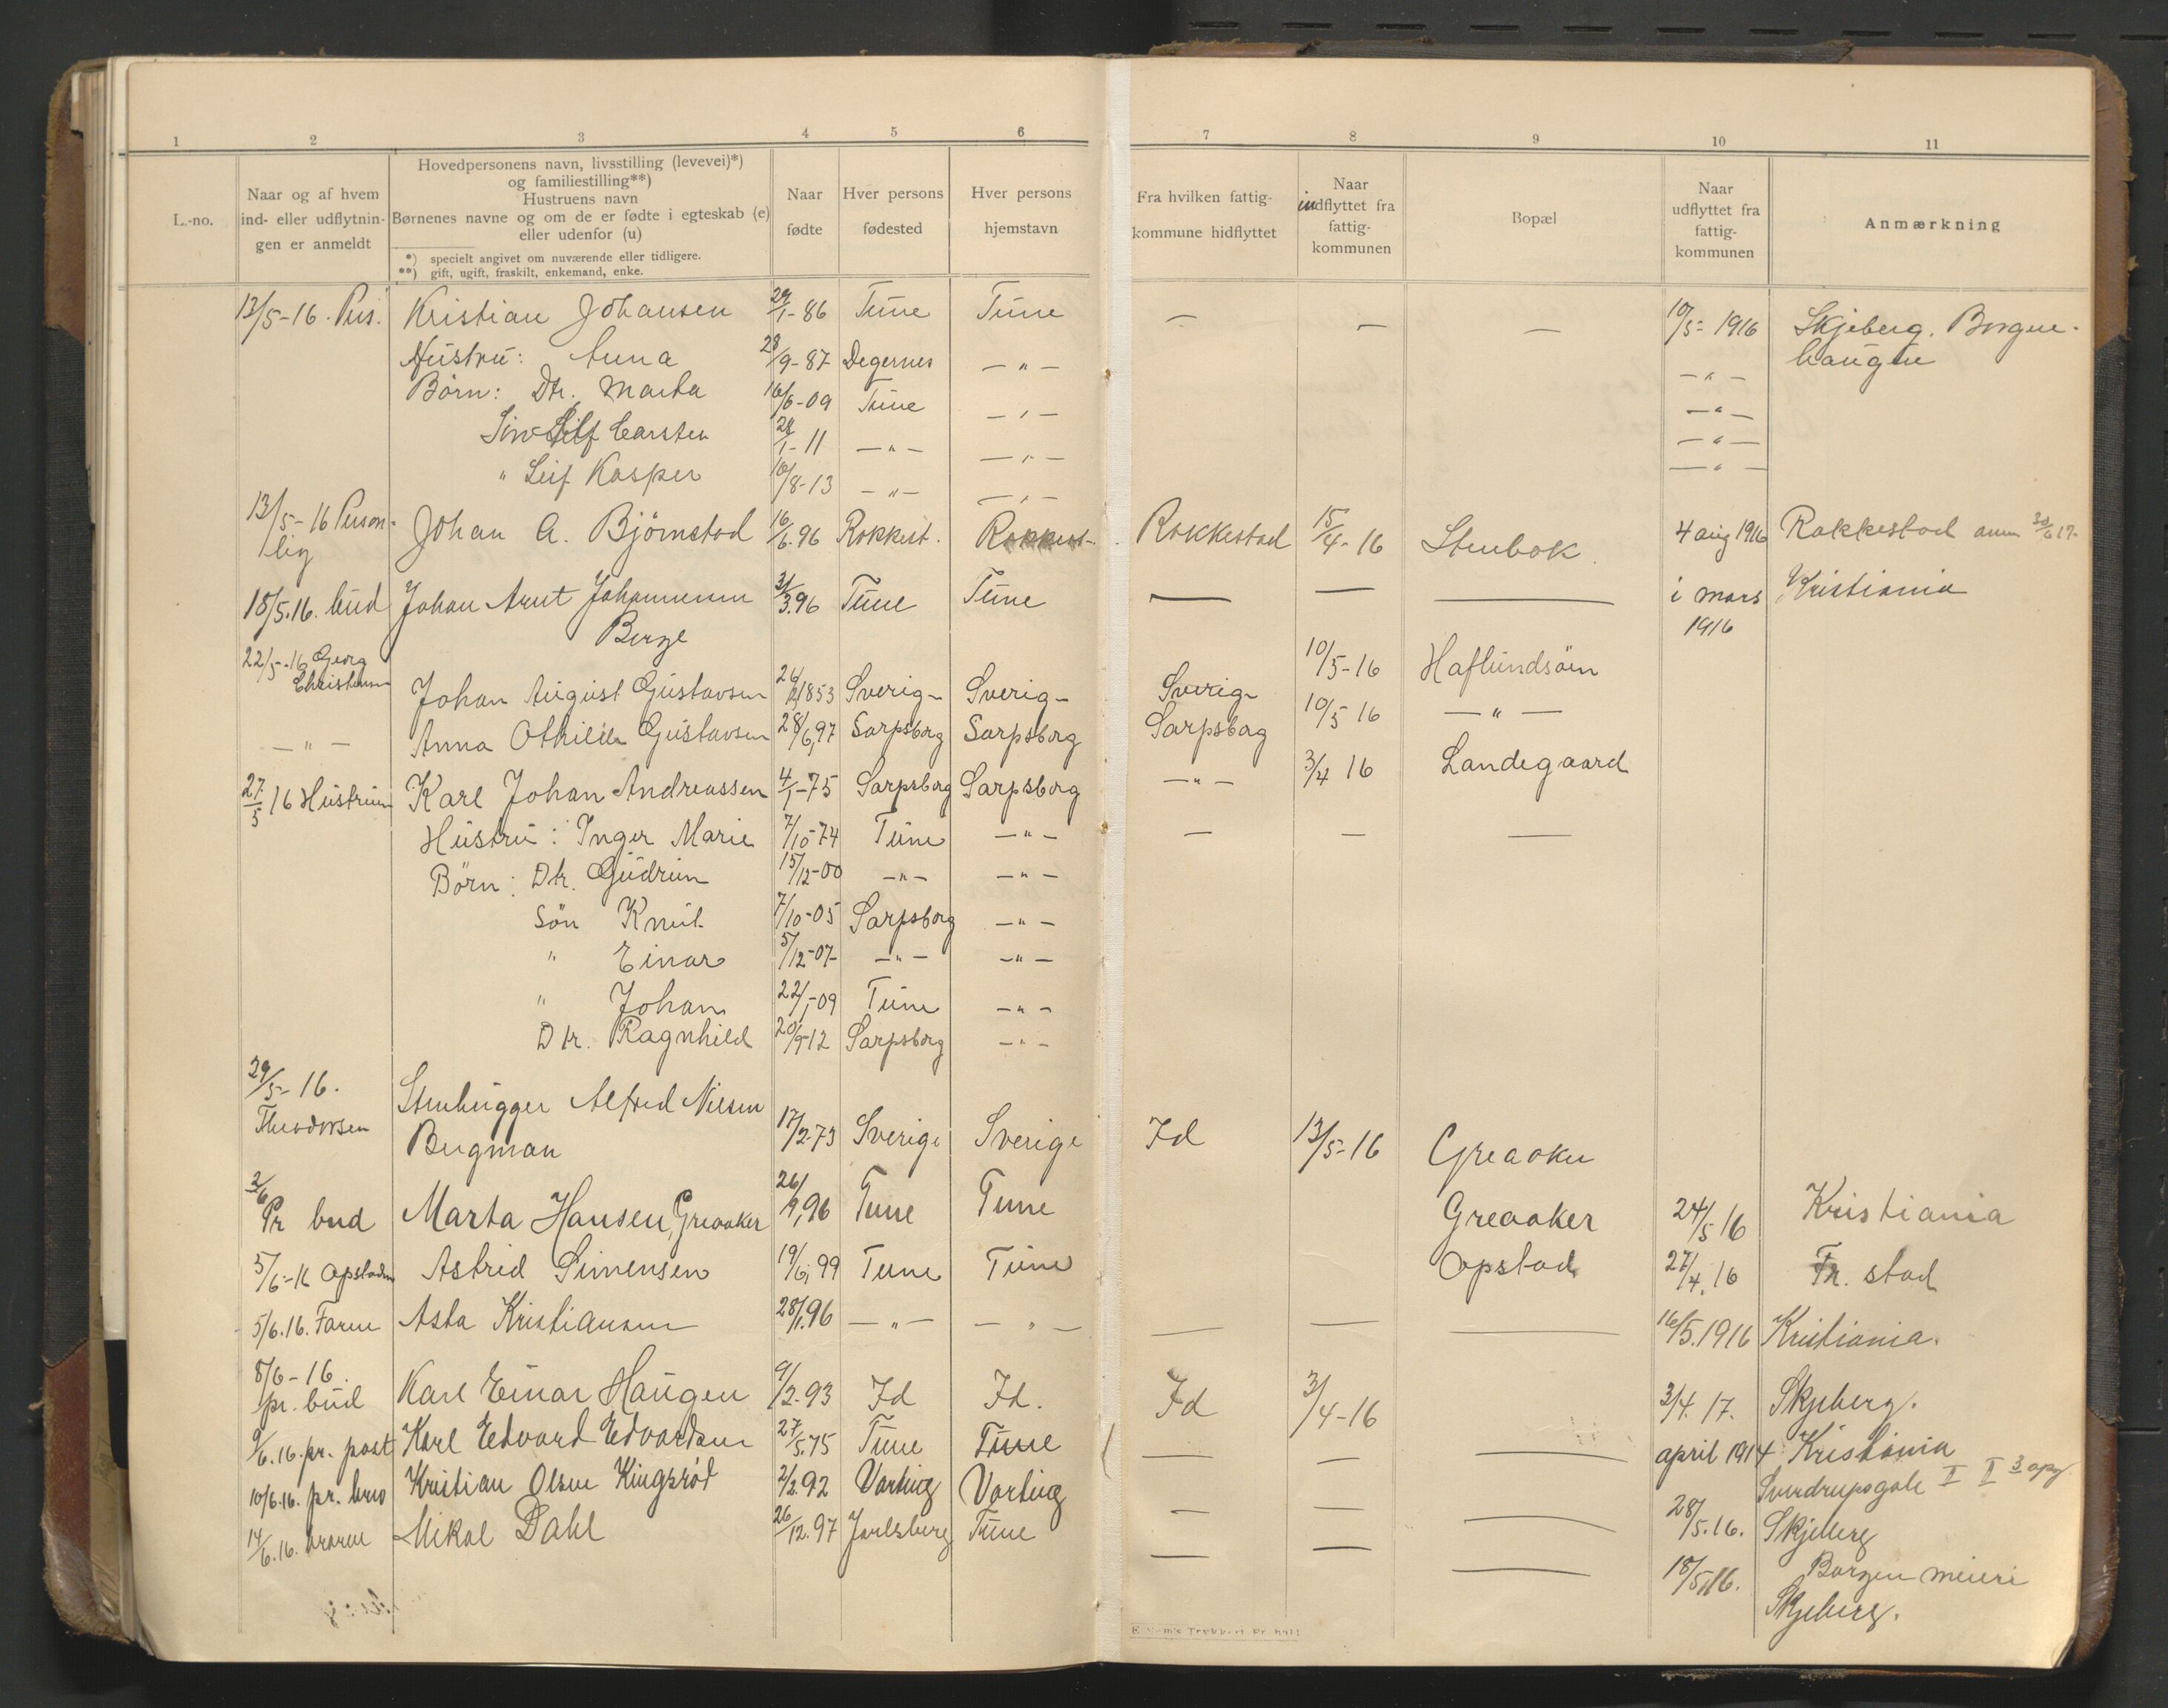 1 2 3 4 5 6 7 8 9 10 11
L.-no.
Naar og af hvem
ind- eller udflytnin-
gen er anmeldt
Hovedpersonens navn, livsstilling (levevei)*)
og familiestilling**)
Hustruens navn
Børnenes navne og om de er fødte i egteskab (e)
eller udenfor (u)
*) specielt angivet om nuværende eller tidligere.
**) gift, ugift, fraskilt, enkemand, enke.
Naar
fødte
Hver persons
fødested
Hver persons
hjemstavn
Fra hvilken fattig-
kommune hidflyttet
Naar
indflyttet fra
fattig-
kommunen
Bopæl
Naar
udflyttet fra
fattig-
kommunen
Anmærkning
13/5-16. Pers. Kristian Johansen 29/1-86 Tune Tune — — — 10/5-1916 Skjeberg. Borgen-
Hustru: Anna 28/9-87 Degernes —"— —"— haugen
Børn: Dtr. Marta 16/6-09 Tune —"— —"—
Søn Carsten 28/1-11 —"— —"— —"—
" Leif Kasper 10/8-13 —"— —"— —"—
13/5-16 Person- Johan A. Bjørnstad 16/6.96 Rokkest. Rokkest. Rokkestad 15/4-16 Stenbok. 4 aug 1916 Rakkestad anm 30/6 17.
lig
18/5.16. bud Johan Arnt Johannesen 31/3.96 Tune Tune — — — i mars Kristiania
Berge 1916
22/5-16 Georg
Christensen Johan August Gustavsen 26/1853 Sverig- Sverig- Sverig- 10/5-16 Haflundsøen
—"— Anna Othilie Gustavsen 28/6,97 Sarpsborg Sarpsborg Sarpsborg 10/5 16 —"—
27/5 16 Hustruen Karl Johan Andreassen 4/1-75 Sarpsborg Sarpsborg —"— 3/4 16 Landegaard
Hustru: Inger Marie 7/10-74 Tune —"— — — —
Børn: Dtr. Gudrun 15/12-00 —"— —"—
Søn Knut 7/10-05 Sarpsborg —"—
" Einar 5/12-07 —"— —"—
" Johan 22/1-09 Tune —"—
Dtr. Ragnhild 20/9-12 Sarpsborg —"—
29/5-16.
Theodorsen Stenhugger Alfred Nilsen
Bergman 17/2-73 Sverige Sverige Id 13/5-16 Greaaker
2/6
Pr bud Marta Hansen, Greaaker 26/9,96 Tune Tune Greaaker 24/5 16 Kristiania
5/6-16 Opstaden Astrid Simensen 19/6,99 Tune Tune Opstad 27/4.16 Fr. stad
5/6.16. Faren Asta Kristiansen 28/1.96 —"— —"— — — — 16/5.1916 Kristiania.
8/6-16.
pr. bud Karl Einar Haugen 9/2-93 Id Id. Id 3/4-16 3/4. 17. Skjeberg.
9/6.16. pr. post Karl Edvard Edvardsen 27/5.75 Tune Tune — — — april 1914 Kristiania
Sverdrupsgate I II 3 opg.
10/6.16. pr. brev Kristian Olsen Kingsrød 2/3.92 Varteig Varteig — — — 28/5.16. Skjeberg
14/6.16. broren Mikal Dahl 26/12.97 Jarlsberg Tune — — — 18/5.16. Borgen meieri
Skjeberg.